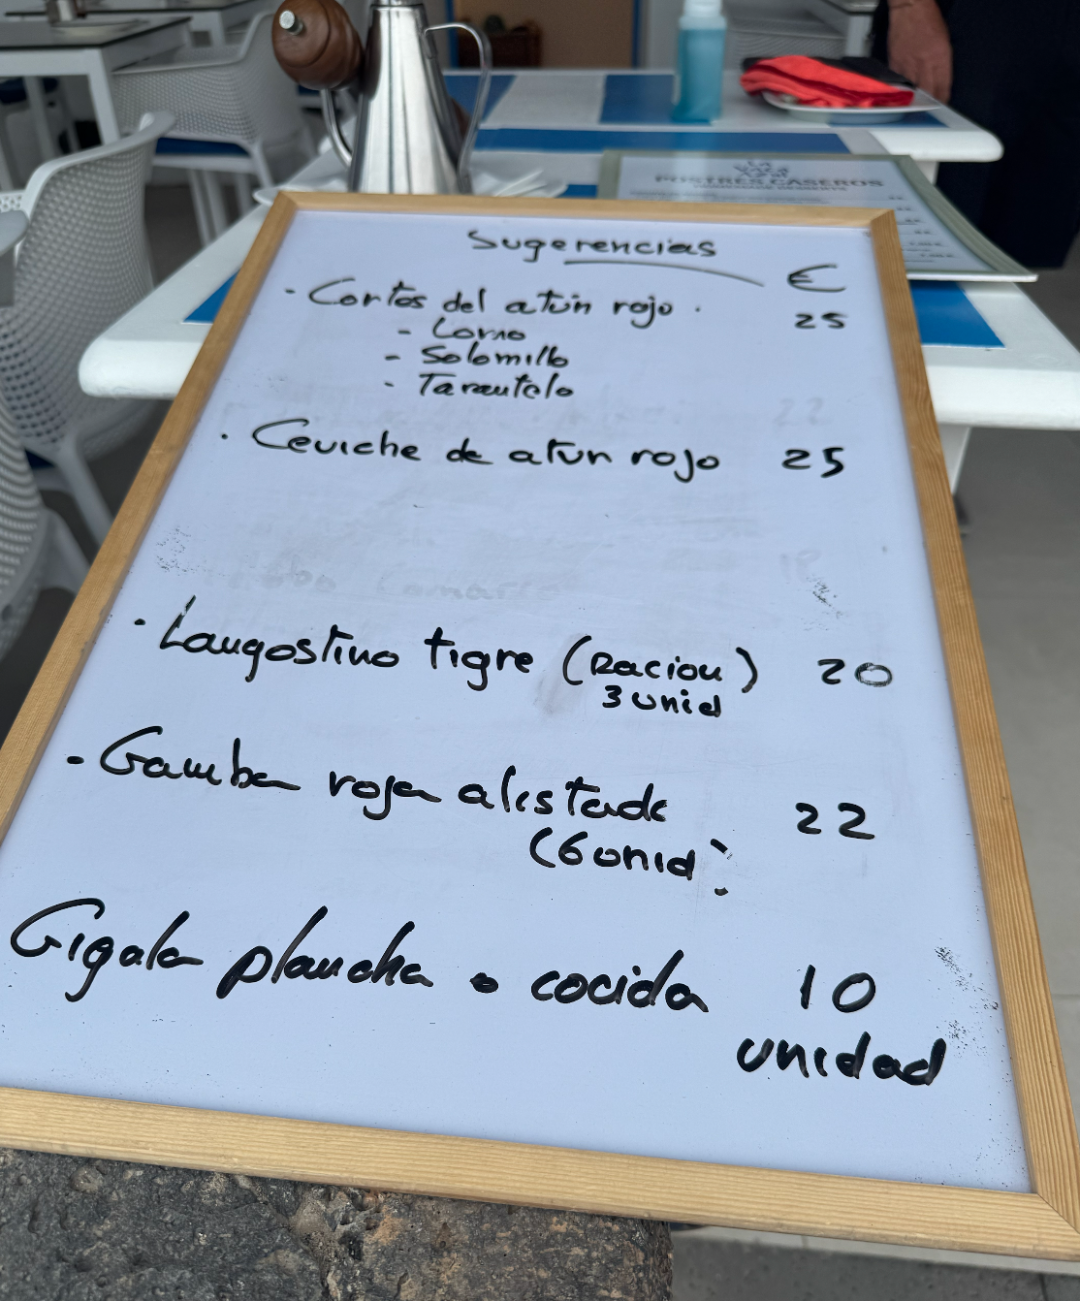 LA
VACA
AZUL
POSTRES CASEROS
Sugerencias
€
· Cortes del atún rojo · 25
- Lomo
- Solomillo
- Tarantelo
22
· Ceviche de atun rojo 25
18
· Langostino tigre (Racion) 20
3 unid
- Gamba roja alistada 22
(6 unid)
Gigala plancha o cocida 10
unidad